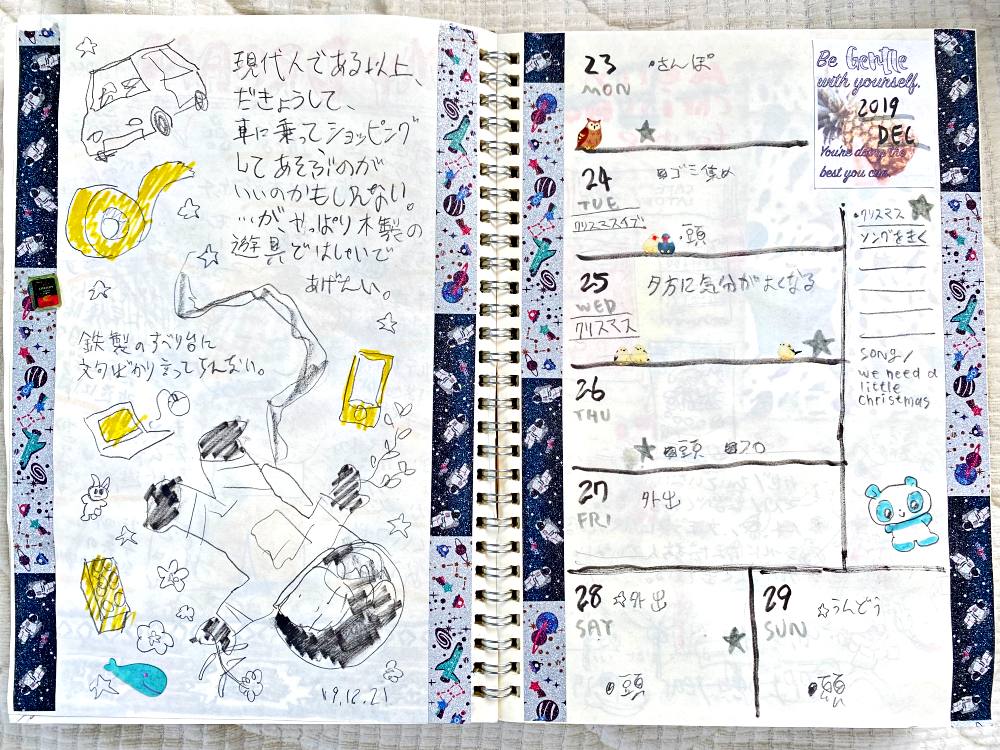 現代人である以上、
だきょうして、
車に乗ってショッピング
してあそぶのが
いいのかもしんない。
…が、やっぱり木製の
遊具ではしゃいで
あげたい。
鉄製のすべり台に
文句ばかり言ってちゃ
19.12.21
23 ・さんぽ
MON
24 ゴミ集め
TUE
クリスマスイブ
・頭
25 夕方に気分がよくなる
WED
クリスマス
26
THU
頭 フロ
27 外出
FRI
28 ☆外出
SAT
頭
29 ☆うんどう
SUN
頭
Be Gentle
with yourself.
2019
DEC
You're doing the
best you can.
・クリスマス
ソングをきく
SONG/
we need a
little
Christmas